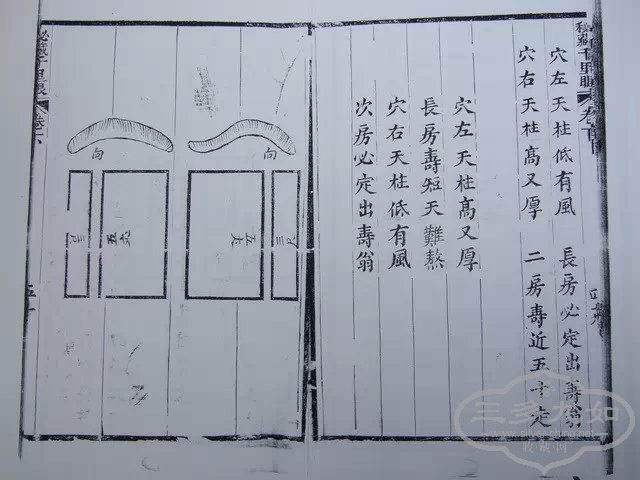 秘藏千里眼
穴左天柱低有風　長房必定出壽翁
穴右天柱高又厚　二房壽近五十定
穴左天柱高又厚
長房壽短天難熬
穴右天柱低有風
次房必定出壽翁
向
三尺
五丈
向
三尺